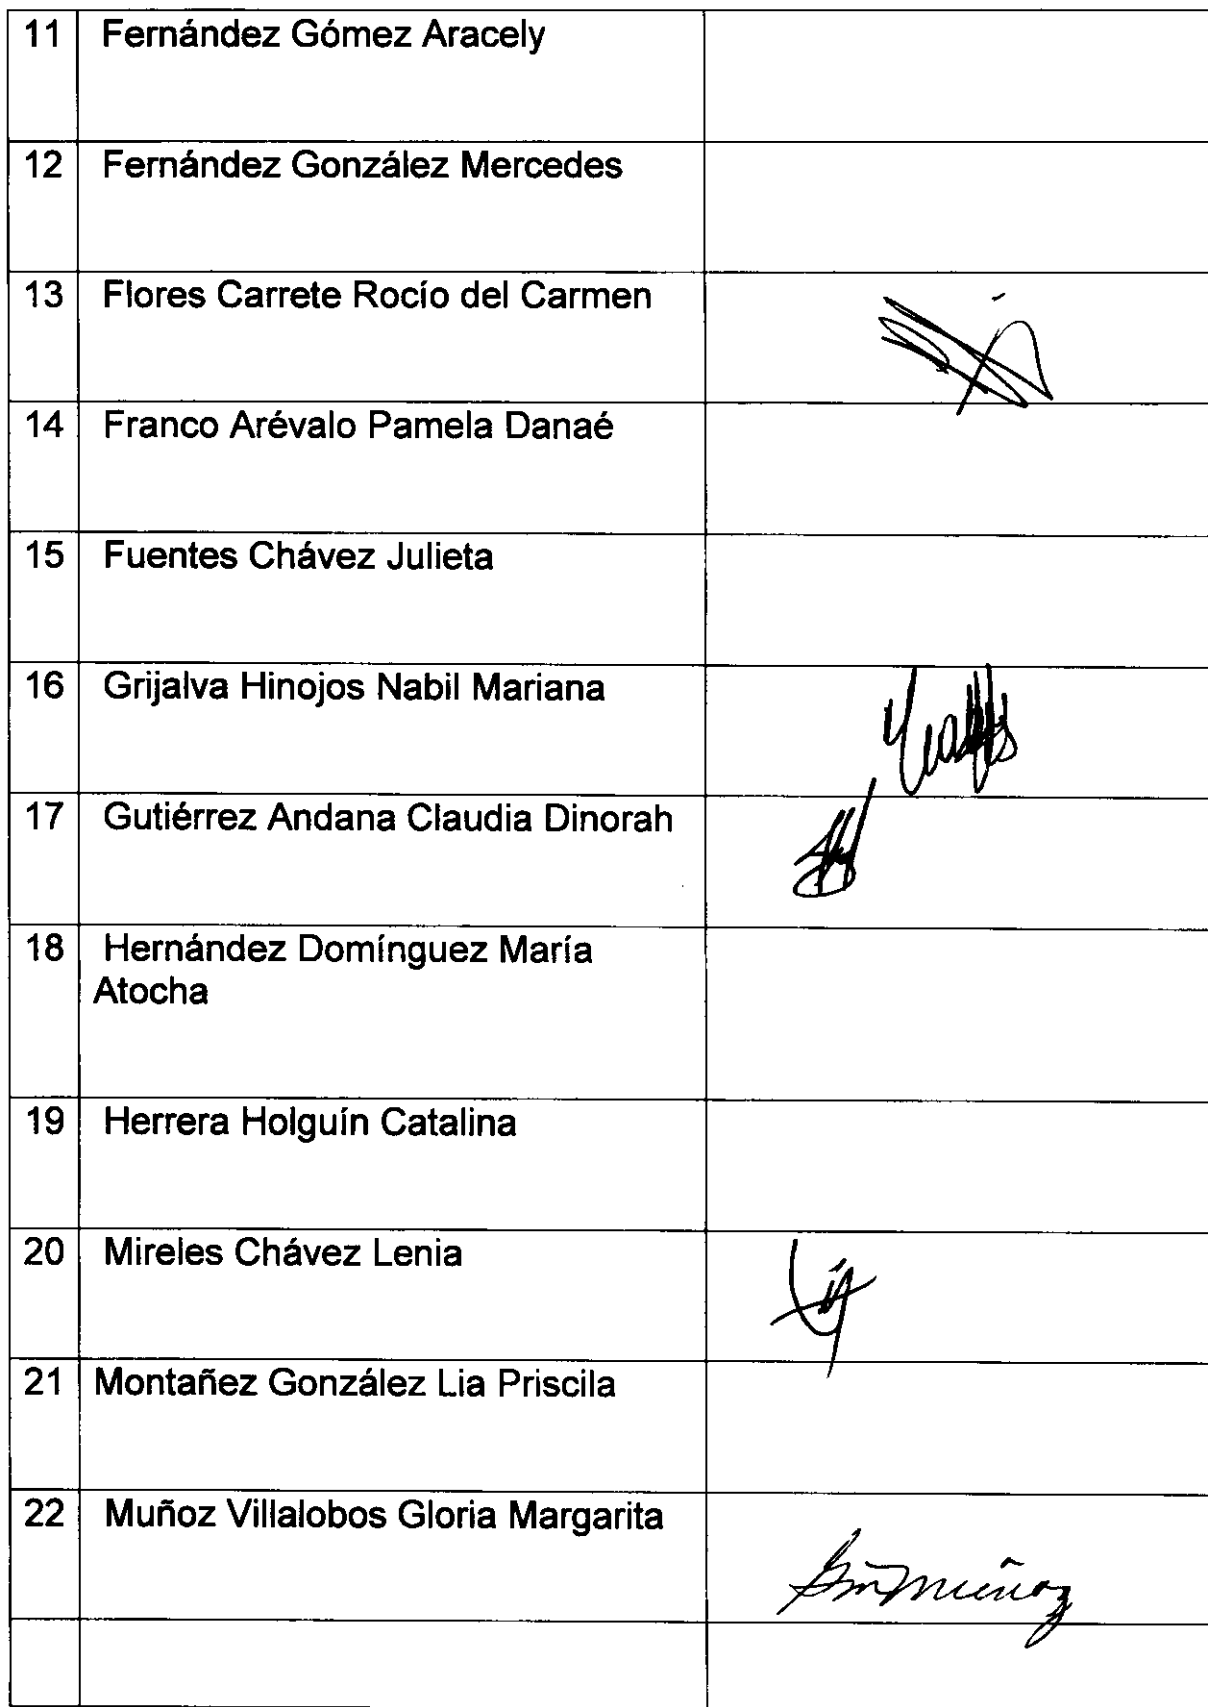 11 Fernández Gómez Aracely
12 Fernández González Mercedes
13 Flores Carrete Rocío del Carmen
14 Franco Arévalo Pamela Danaé
15 Fuentes Chávez Julieta
16 Grijalva Hinojos Nabil Mariana
17 Gutiérrez Andana Claudia Dinorah
18 Hernández Domínguez María
Atocha
19 Herrera Holguín Catalina
20 Mireles Chávez Lenia
21 Montañez González Lia Priscila
22 Muñoz Villalobos Gloria Margarita